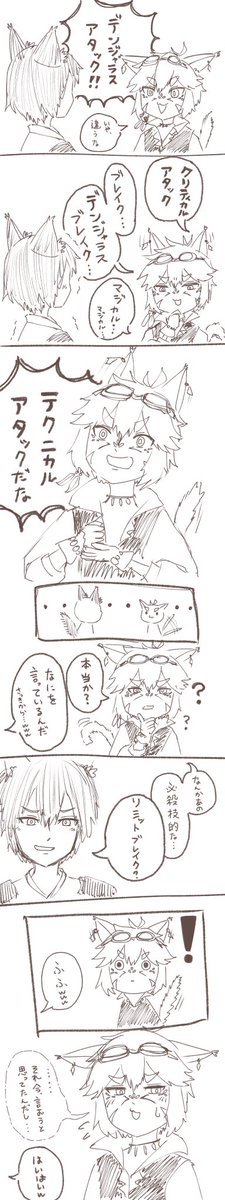 デンジャラス
アタック!!
いや、
違うな
クリティカル
アタック
ブレイク…
デンジャラス
ブレイク…
マジカル…
マジカル…
テクニカル
アタックだな
・・・
・・・
本当か?
なにを
言っているんだ
さっきから…ww
?
?
なんかあの
必殺技的な…
リミットブレイク?
!
ふふww
……
それ今、言おうと
思ってたんだし…
はいはいw